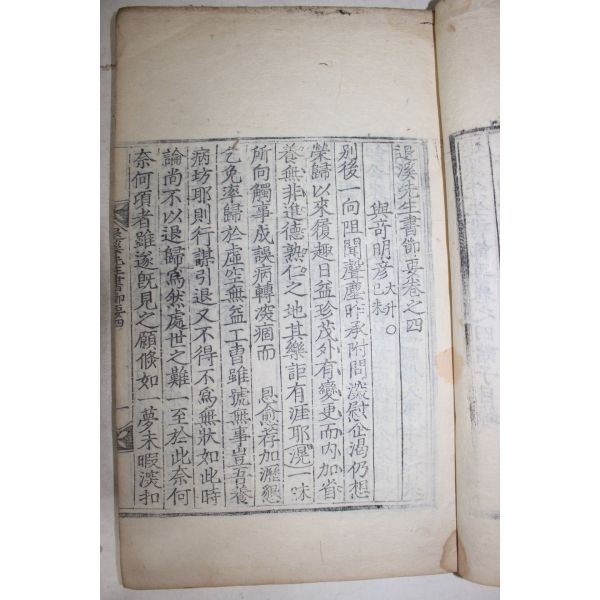 退溪先生書節要卷之四
與奇明彦大升○己未
別後一向阻聞聲塵昨承附問深慰企渴仍想
榮歸以來履趣日益珍茂外有變更而內加省
養無非進德熟仁之地其樂詎有涯耶滉一味
所向觸事成誤病轉深痼而 恩愈荐加瀝懇
乞免率歸於虛空無益工曹雖號無事豈吾養
病坊耶則行謀引退又不得不爲無狀如此時
論尚不以退歸爲然處世之難一至於此奈何
奈何頃者雖遂旣見之願倏如一夢未暇深扣
退溪先生書節要四
一